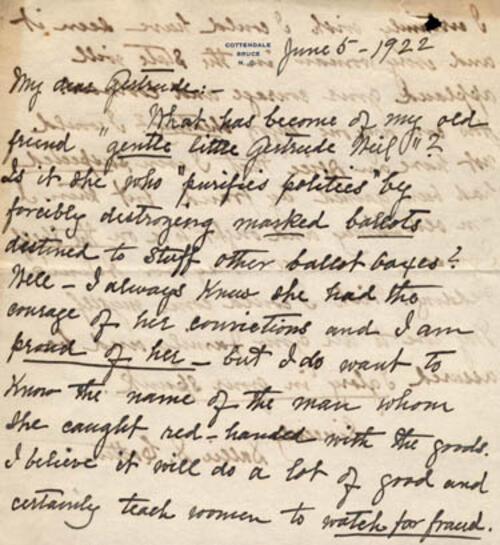 COTTENDALE
BRUCE
N.C.
June 5 - 1922
My dear Gertrude:-
What has become of my old
friend "gentle little Gertrude Weil"?
Is it she who "purifies politics" by
forcibly destroying marked ballots
destined to stuff other ballot boxes?
Well - I always knew she had the
courage of her convictions and I am
proud of her - but I do want to
know the name of the man whom
she caught red-handed with the goods.
I believe it will do a lot of good and
certainly teach women to watch for fraud.